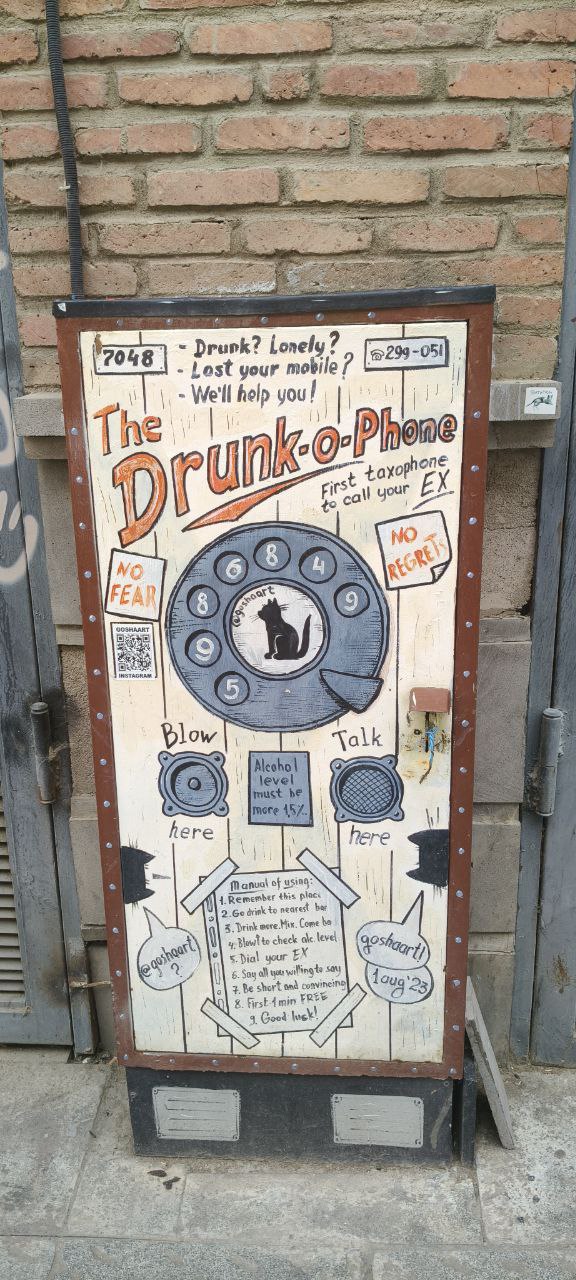 7048
- Drunk? Lonely?
- Lost your mobile?
- We'll help you!
299-051
The
Drunk-o-Phone
First taxophone
to call your EX
NO
FEAR
NO
REGRETS
GOSHAART
INSTAGRAM
@goshaart
5 9 8 6 8 4 9
Blow
here
Alcohol
level
must be
more 15%.
Talk
here
Manual of using:
1. Remember this place
2. Go drink to nearest bar
3. Drink more. Mix. Come ba
4. Blow! to check alc. level
5. Dial your EX
6. Say all you willing to say
7. Be short and convincing
8. First 1 min FREE
9. Good luck!
@goshaart
?
goshaart!
1aug'23